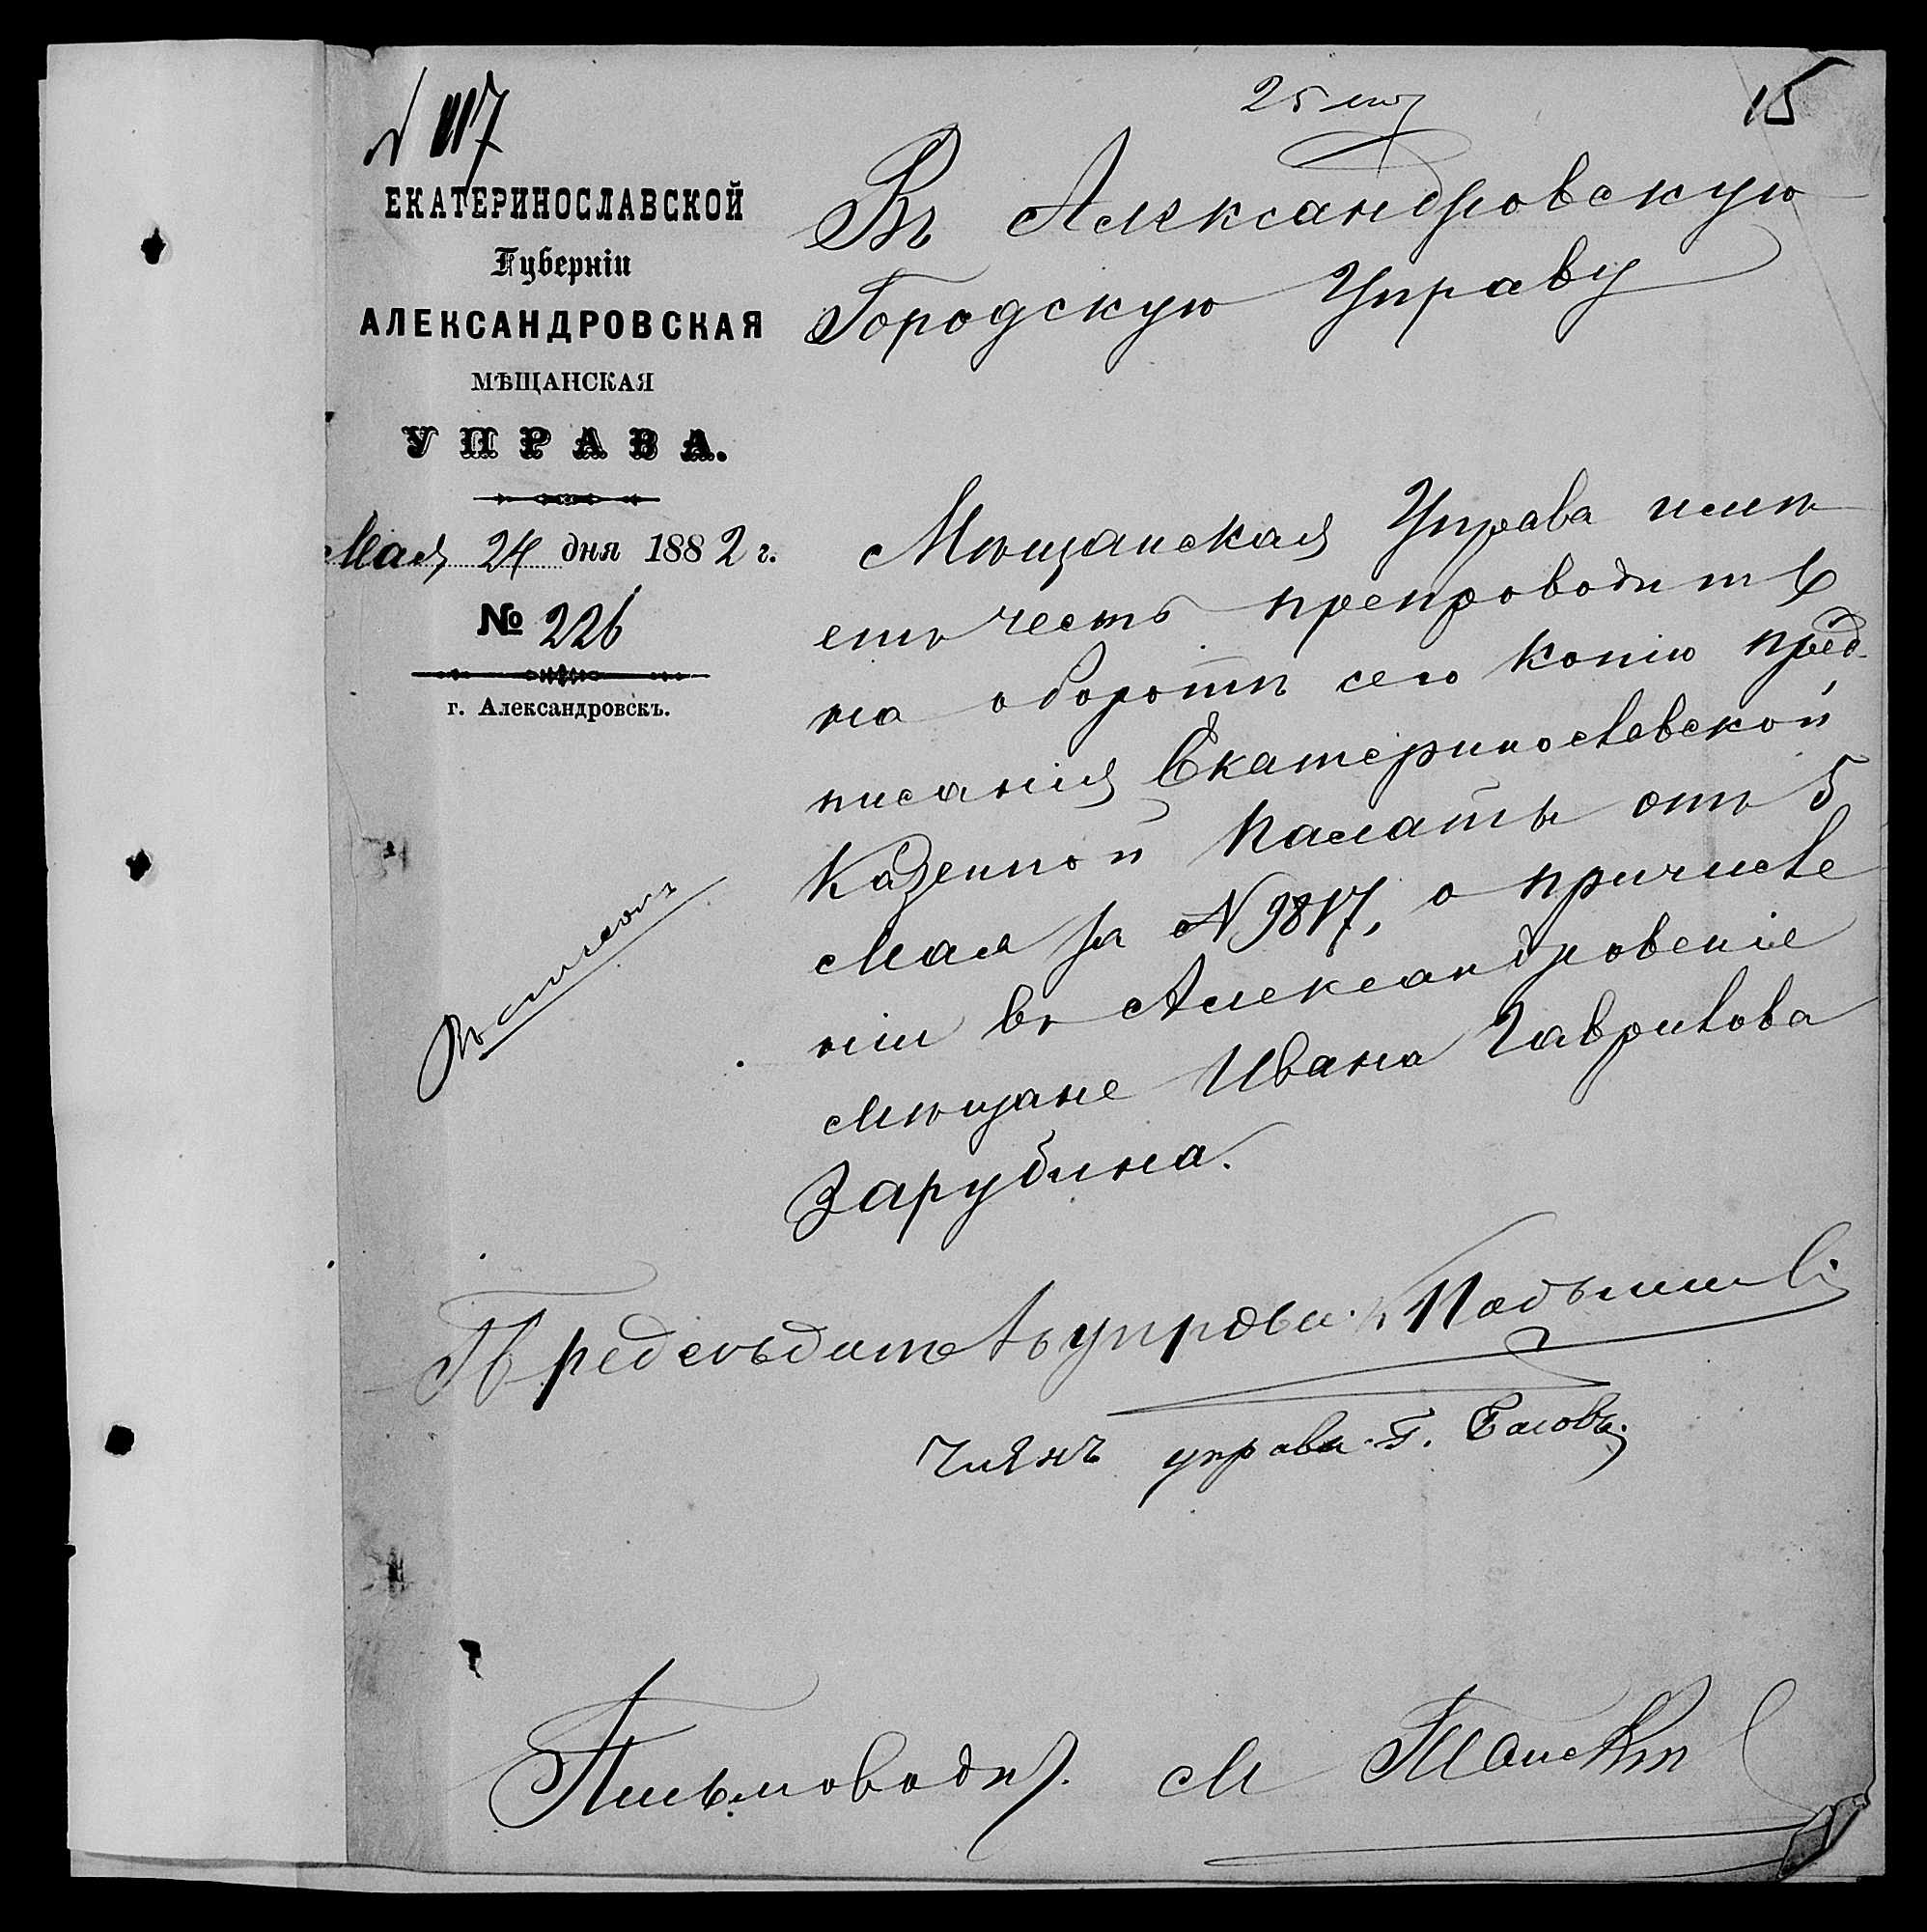 25 мая
15
№ 1117
ЕКАТЕРИНОСЛАВСКОЙ
Губерніи
АЛЕКСАНДРОВСКАЯ
МѢЩАНСКАЯ
УПРАВА.
Мая 24 дня 1882 г.
№ 226
г. Александровскъ.
Въ Александровскую
Городскую Управу
Мѣщанская Управа имѣ
етъ честь препроводить
на оборотѣ сего копію пред-
писанія Екатеринославской
Казенной Палаты отъ 5
Мая за № 9817, о причисле
ніи въ Александровскіе
мѣщане Ивана Гаврилова
Зарубина.
Предсѣдатель управы
Члѣнъ управы Г. Басовъ.
Письмовод. М